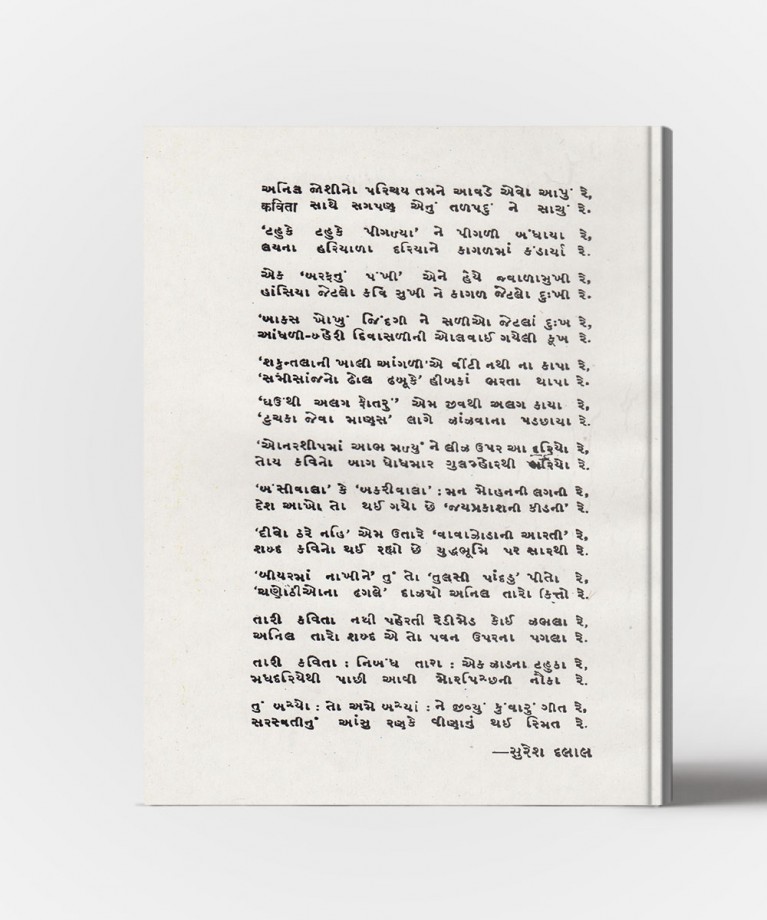 અનિલ જોશીનો પરિચય તમને આવડે એવો આપું રે,
કવિતા સાથે સગપણ એનું તળપદું ને સાચું રે.
‘ટહુકે ટહુકે પીગળ્યા’ ને પીગળી બંધાયા રે,
લયના હરિયાળા દરિયાને કાગળમાં કંડાર્યા રે.
એક ‘બરફનું પંખી’ એને હૈયે જ્વાળામુખી રે,
હાંસિયા જેટલો કવિ સુખી ને કાગળ જેટલો દુઃખી રે.
‘બાકસ ખોખું જિંદગી ને સળીઓ જેટલાં દુઃખ રે,
આંધળી-બ્હેરી દિવાસળીની ઓલવાઈ ગયેલી કૂખ રે.
‘શકુન્તલાની ખાલી આંગળી’એ વીંટી નથી ના કાપા રે,
‘સમીસાંજનો ઢોલ ઢબૂકે’ હીબકાં ભરતા થાપા રે.
‘ઘઉંથી અલગ ફોતરું’ એમ જીવથી અલગ કાયા રે,
‘ટુચકા જેવા માણસ’ લાગે ઝાંઝવાના પડછાયા રે.
‘ઓનરશીપમાં આભ મળ્યું’ ને લીઝ ઉપર આ દરિયો રે,
તોય કવિનો બાગ ધોધમાર ગુલમ્હોરથી ભરિયો રે.
‘બંસીવાલા’ કે ‘બકરીવાલા’ : મન મોહનની લગની રે,
દેશ આખો તો થઈ ગયો છે ‘જયપ્રકાશની કીડની’ રે.
‘દીવો ઠરે નહિ’ એમ ઉતારે ‘વાવાઝોડાની આરતી’ રે,
શબ્દ કવિનો થઈ રહ્યો છે યુદ્ધભૂમિ પર સારથી રે.
‘બીયરમાં નાખીને’ તું તો ‘તુલસી પાંદડું’ પીતો રે,
‘ચણોઠીઓના ઢગલે’ દાઝયો અનિલ તારો કિત્તો રે.
તારી કવિતા નથી પહેરતી રેડીમેડ કોઈ ઝભલા રે,
અનિલ તારો શબ્દ એ તો પવન ઉપરના પગલા રે.
તારી કવિતા : નિબંધ તારા : એક ઝાડના ટહુકા રે,
મધદરિયેથી પાછી આવી મોરપિચ્છની નૌકા રે.
તું બચ્ચો : તો અમે બચ્યાં : ને જીવ્યું કુંવારું ગીત રે,
સરસ્વતીનું આંસુ રણકે વીણાનું થઈ સ્મિત રે.
—સુરેશ દલાલ